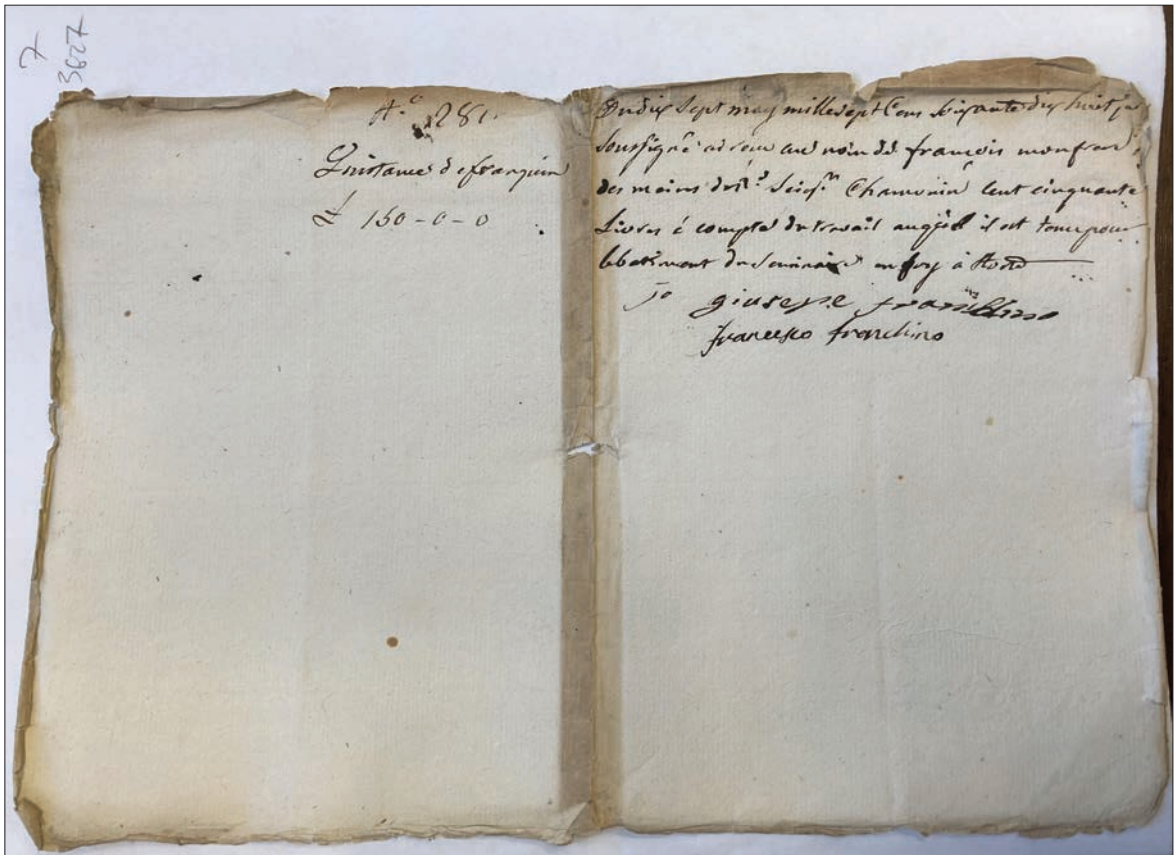 7
3627
N.º 281.
Quittance de franquin
₤ 150-0-0
Du dix Sept may mille sept Cens Soixante dix huit je
soussigné ai recu au nom de françois mon frere
des mains du R.d Seig.r Chamonin Cent cinquante
Livres à compte du travail auquel il est tenu pour
le batiment du Seminaire en foy à Aoste
Jo giusepe franchino
francesco franchino